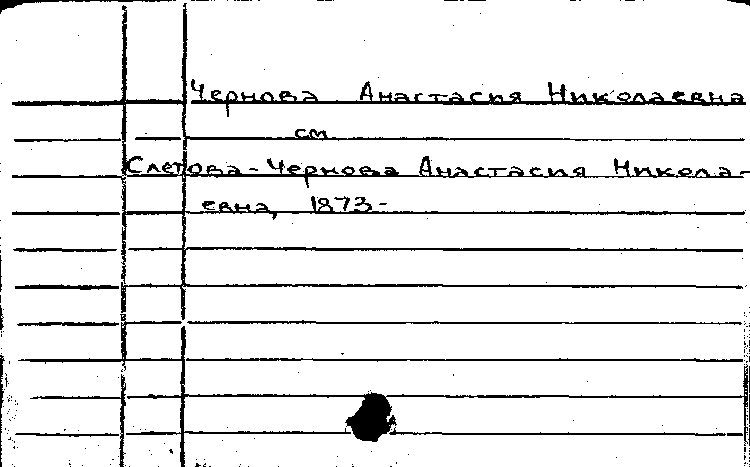 Чернова Анастасия Николаевна
см.
Слетова-Чернова Анастасия Никола-
евна, 1873-